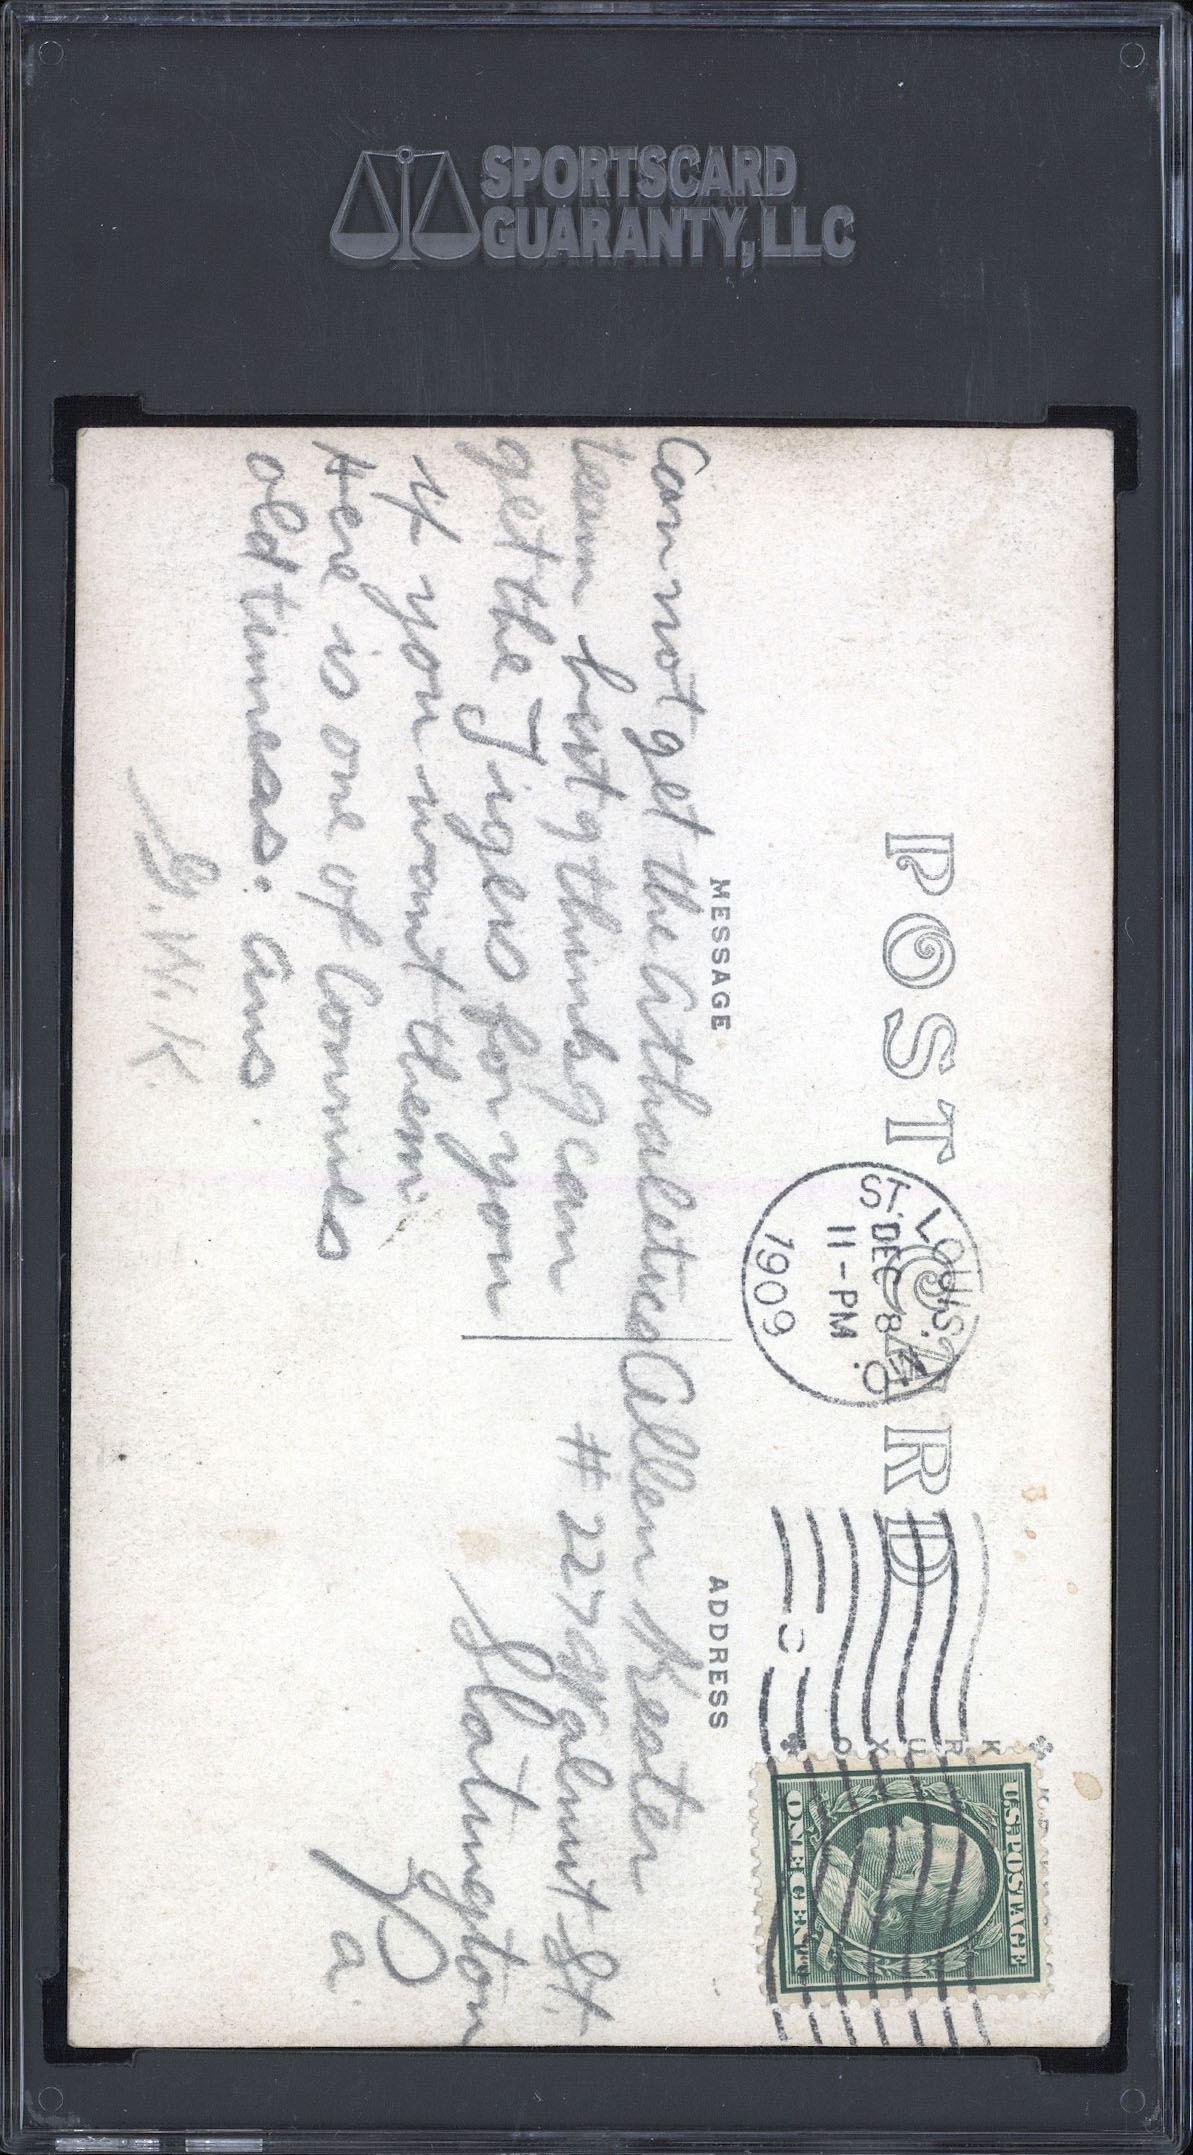 SPORTSCARD
GUARANTY, LLC
POST CARD
ST. LOUIS, MO.
DEC 8
11-PM
1909
U.S. POSTAGE
ONE CENT
K R U X O
MESSAGE
Can not get the Athaletics
team but I think I can
get the Tigers for you
if you want them.
Here is one of Connies
old timeas. Ans.
G. W. K.
ADDRESS
Allen Kester
# 227 Walnut St.
Slatington
Pa.